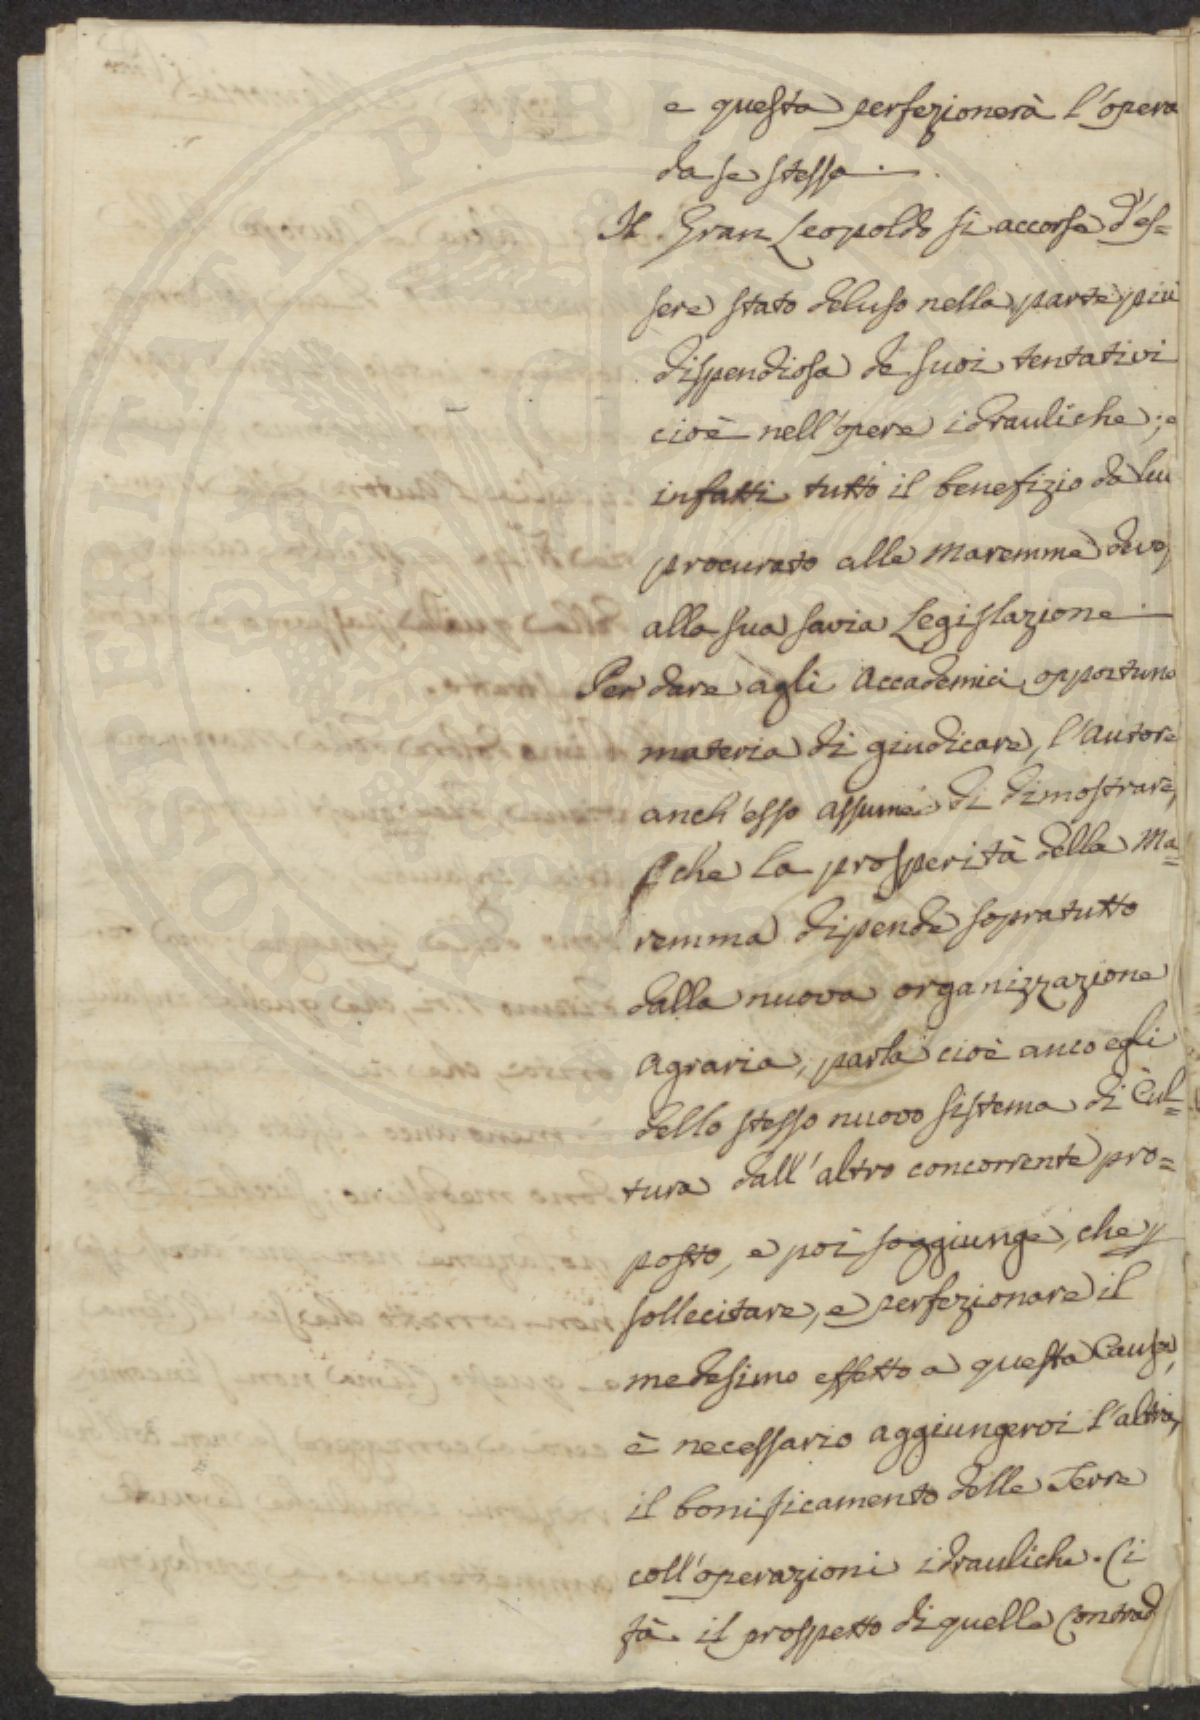 e questa perfezionerà l'opera
da se stessa.
Il Gran Leopoldo si accorse d'es=
sere stato deluso nella parte più
dispendiosa de suoi tentativi
cioè nell'opere idrauliche; e
infatti tutto il benefizio da lui
procurato alle Maremme devesi
alla sua savia Legislazione
Per dare agli Accademici opportuna
materia di giudicare, l'Autore
anch'esso assume di dimostrare,
che la prosperità della Ma=
remma dipende sopratutto
dalla nuova organizzazione
Agraria, parla cioè anco egli
dello stesso nuovo sistema di Cul=
tura dall'altro concorrente pro=
posto, e poi soggiunge, che p
sollecitare, e perfezionare il
medesimo effetto a questa Causa,
è necessario aggiungervi l'altra,
il bonificamento delle Terre
coll'operazioni idrauliche. Ci
fà il prospetto di quelle Contrad